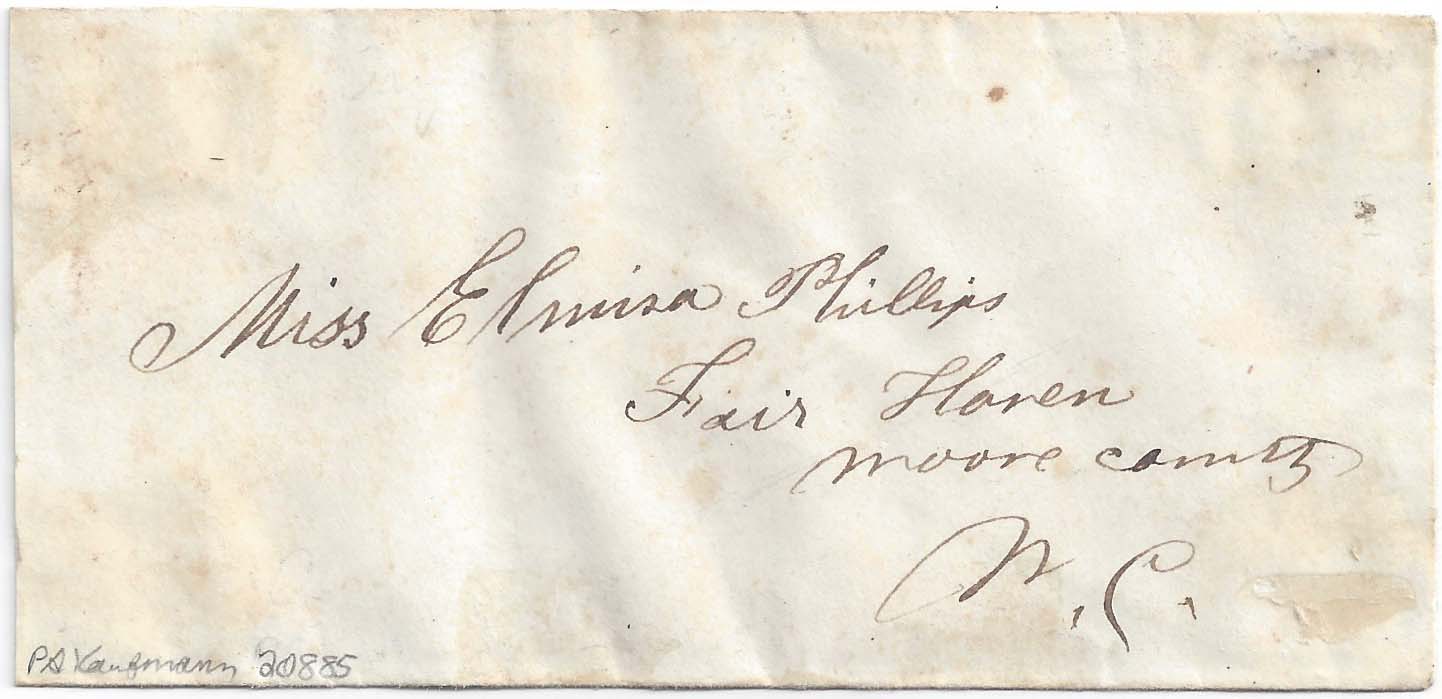 Miss Elmira Phillips
Fair Haven
moore county
N. C.
PA Kaufmann 20885